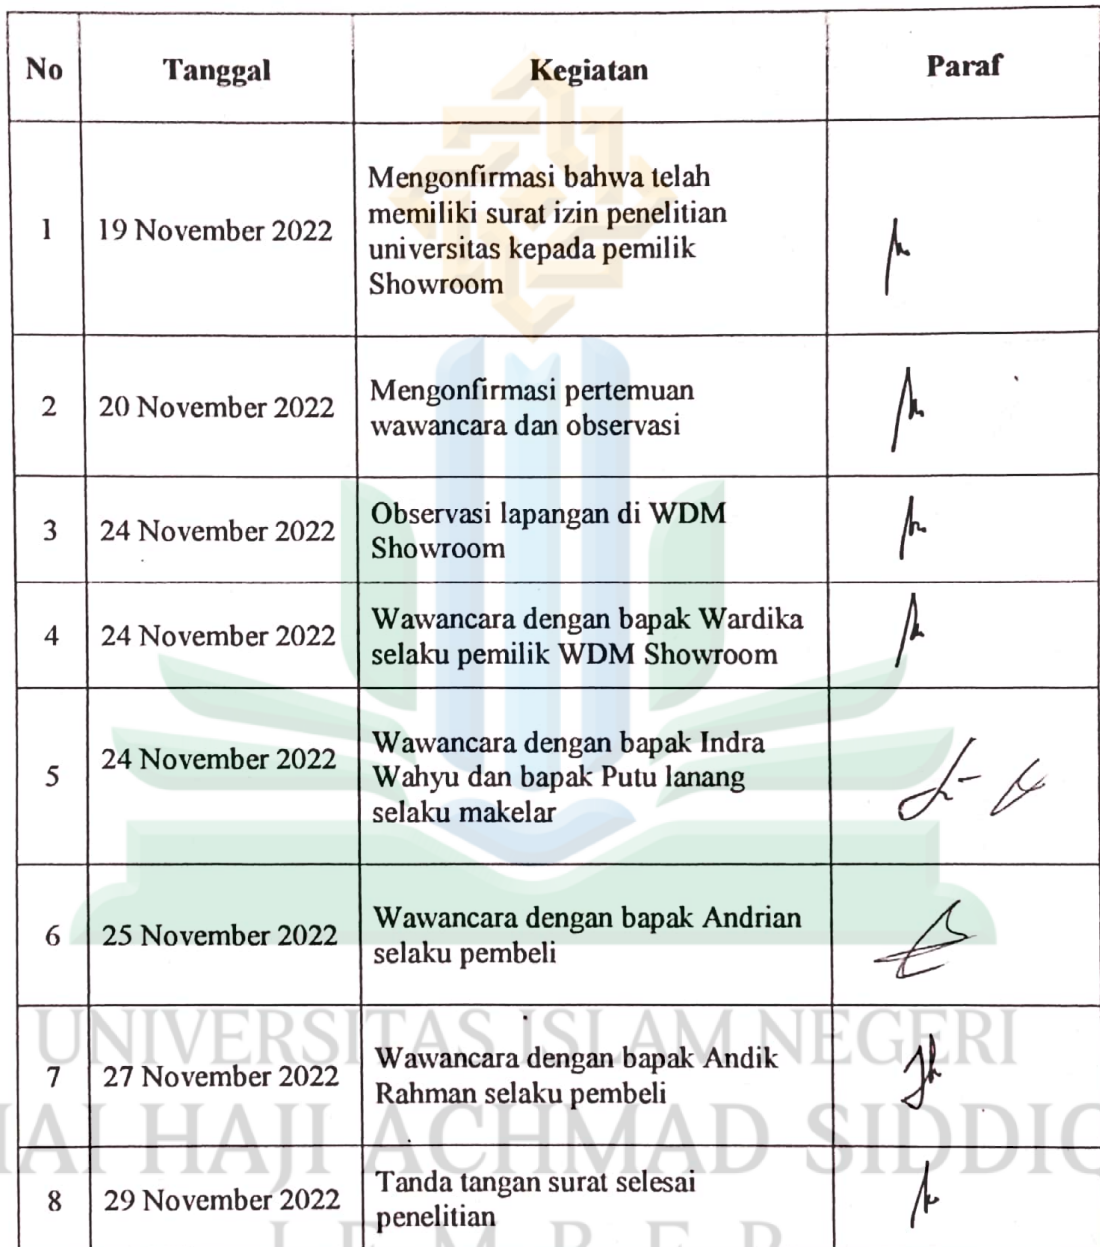 No Tanggal Kegiatan Paraf
1 19 November 2022 Mengonfirmasi bahwa telah
memiliki surat izin penelitian
universitas kepada pemilik
Showroom
2 20 November 2022 Mengonfirmasi pertemuan
wawancara dan observasi
3 24 November 2022 Observasi lapangan di WDM
Showroom
4 24 November 2022 Wawancara dengan bapak Wardika
selaku pemilik WDM Showroom
5 24 November 2022 Wawancara dengan bapak Indra
Wahyu dan bapak Putu lanang
selaku makelar
6 25 November 2022 Wawancara dengan bapak Andrian
selaku pembeli
7 27 November 2022 Wawancara dengan bapak Andik
Rahman selaku pembeli
8 29 November 2022 Tanda tangan surat selesai
penelitian
UNIVERSITAS ISLAM NEGERI
AI HAJI ACHMAD SIDDIQ
J E M B E R